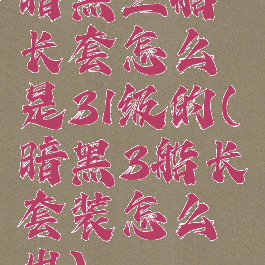 暗黑三船
长套怎么
是31级的(
暗黑3船长
套装怎么
出)